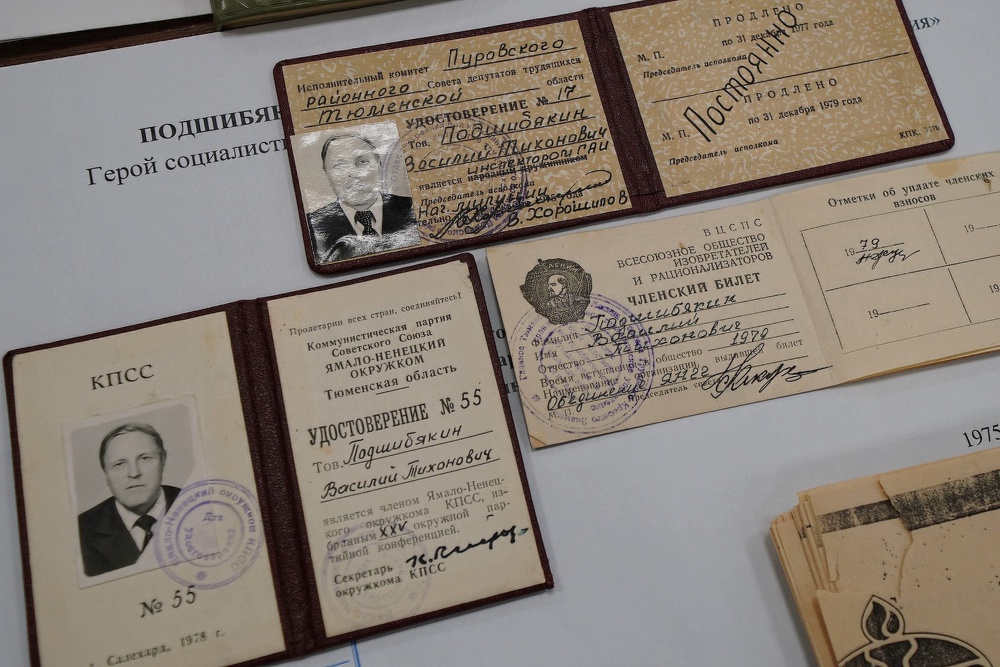 ПОДШИБЯК
Герой социалист
ия»
Исполнительный комитет Пуровского
районного Совета депутатов трудящихся
Тюменской области
УДОСТОВЕРЕНИЕ № 17
Тов. Подшибякин
Василий Тихонович
инспектором ГАИ
является народным дружинником
Председатель исполкома
В. Хорошилов
ПРОДЛЕНО
по 31 декабря 1977 года
М. П.
Председатель исполкома
Постоянно
ПРОДЛЕНО
по 31 декабря 1979 года
М. П.
Председатель исполкома
КПСС
№ 55
г. Салехард, 1978 г.
Пролетарии всех стран, соединяйтесь!
Коммунистическая партия
Советского Союза
ЯМАЛО-НЕНЕЦКИЙ
ОКРУЖКОМ
Тюменская область
УДОСТОВЕРЕНИЕ № 55
Тов. Подшибякин
Василий Тихонович
является членом Ямало-Ненец-
кого окружкома КПСС, из-
бранным XXV окружной пар-
тийной конференцией.
Секретарь
окружкома КПСС
ВЦСПС
ВСЕСОЮЗНОЕ ОБЩЕСТВО
ИЗОБРЕТАТЕЛЕЙ
И РАЦИОНАЛИЗАТОРОВ
ЧЛЕНСКИЙ БИЛЕТ
Фамилия Подшибякин
Имя Василий
Отчество Тихонович
Время вступления в общество 1979
Наименование организации, выдавшей билет
Объединение ЯНГГ
М. П. Председатель совета
Отметки об уплате членских
взносов
1979
19
19
19
1975